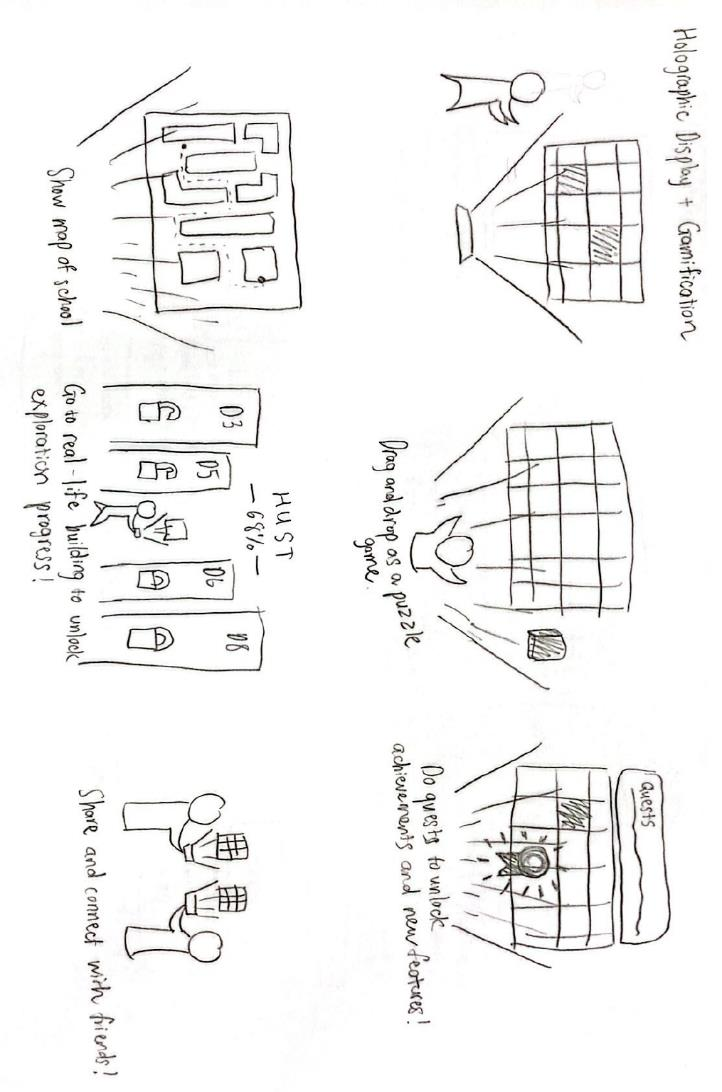 Holographic Display + Gamification
Drag and drop as a puzzle
game.
Quests
Do quests to unlock
achievements and new features!
Show map of school
HUST
— 68% —
D3
D5
D6
D8
Go to real-life building to unlock
exploration progress!
Share and connect with friends!